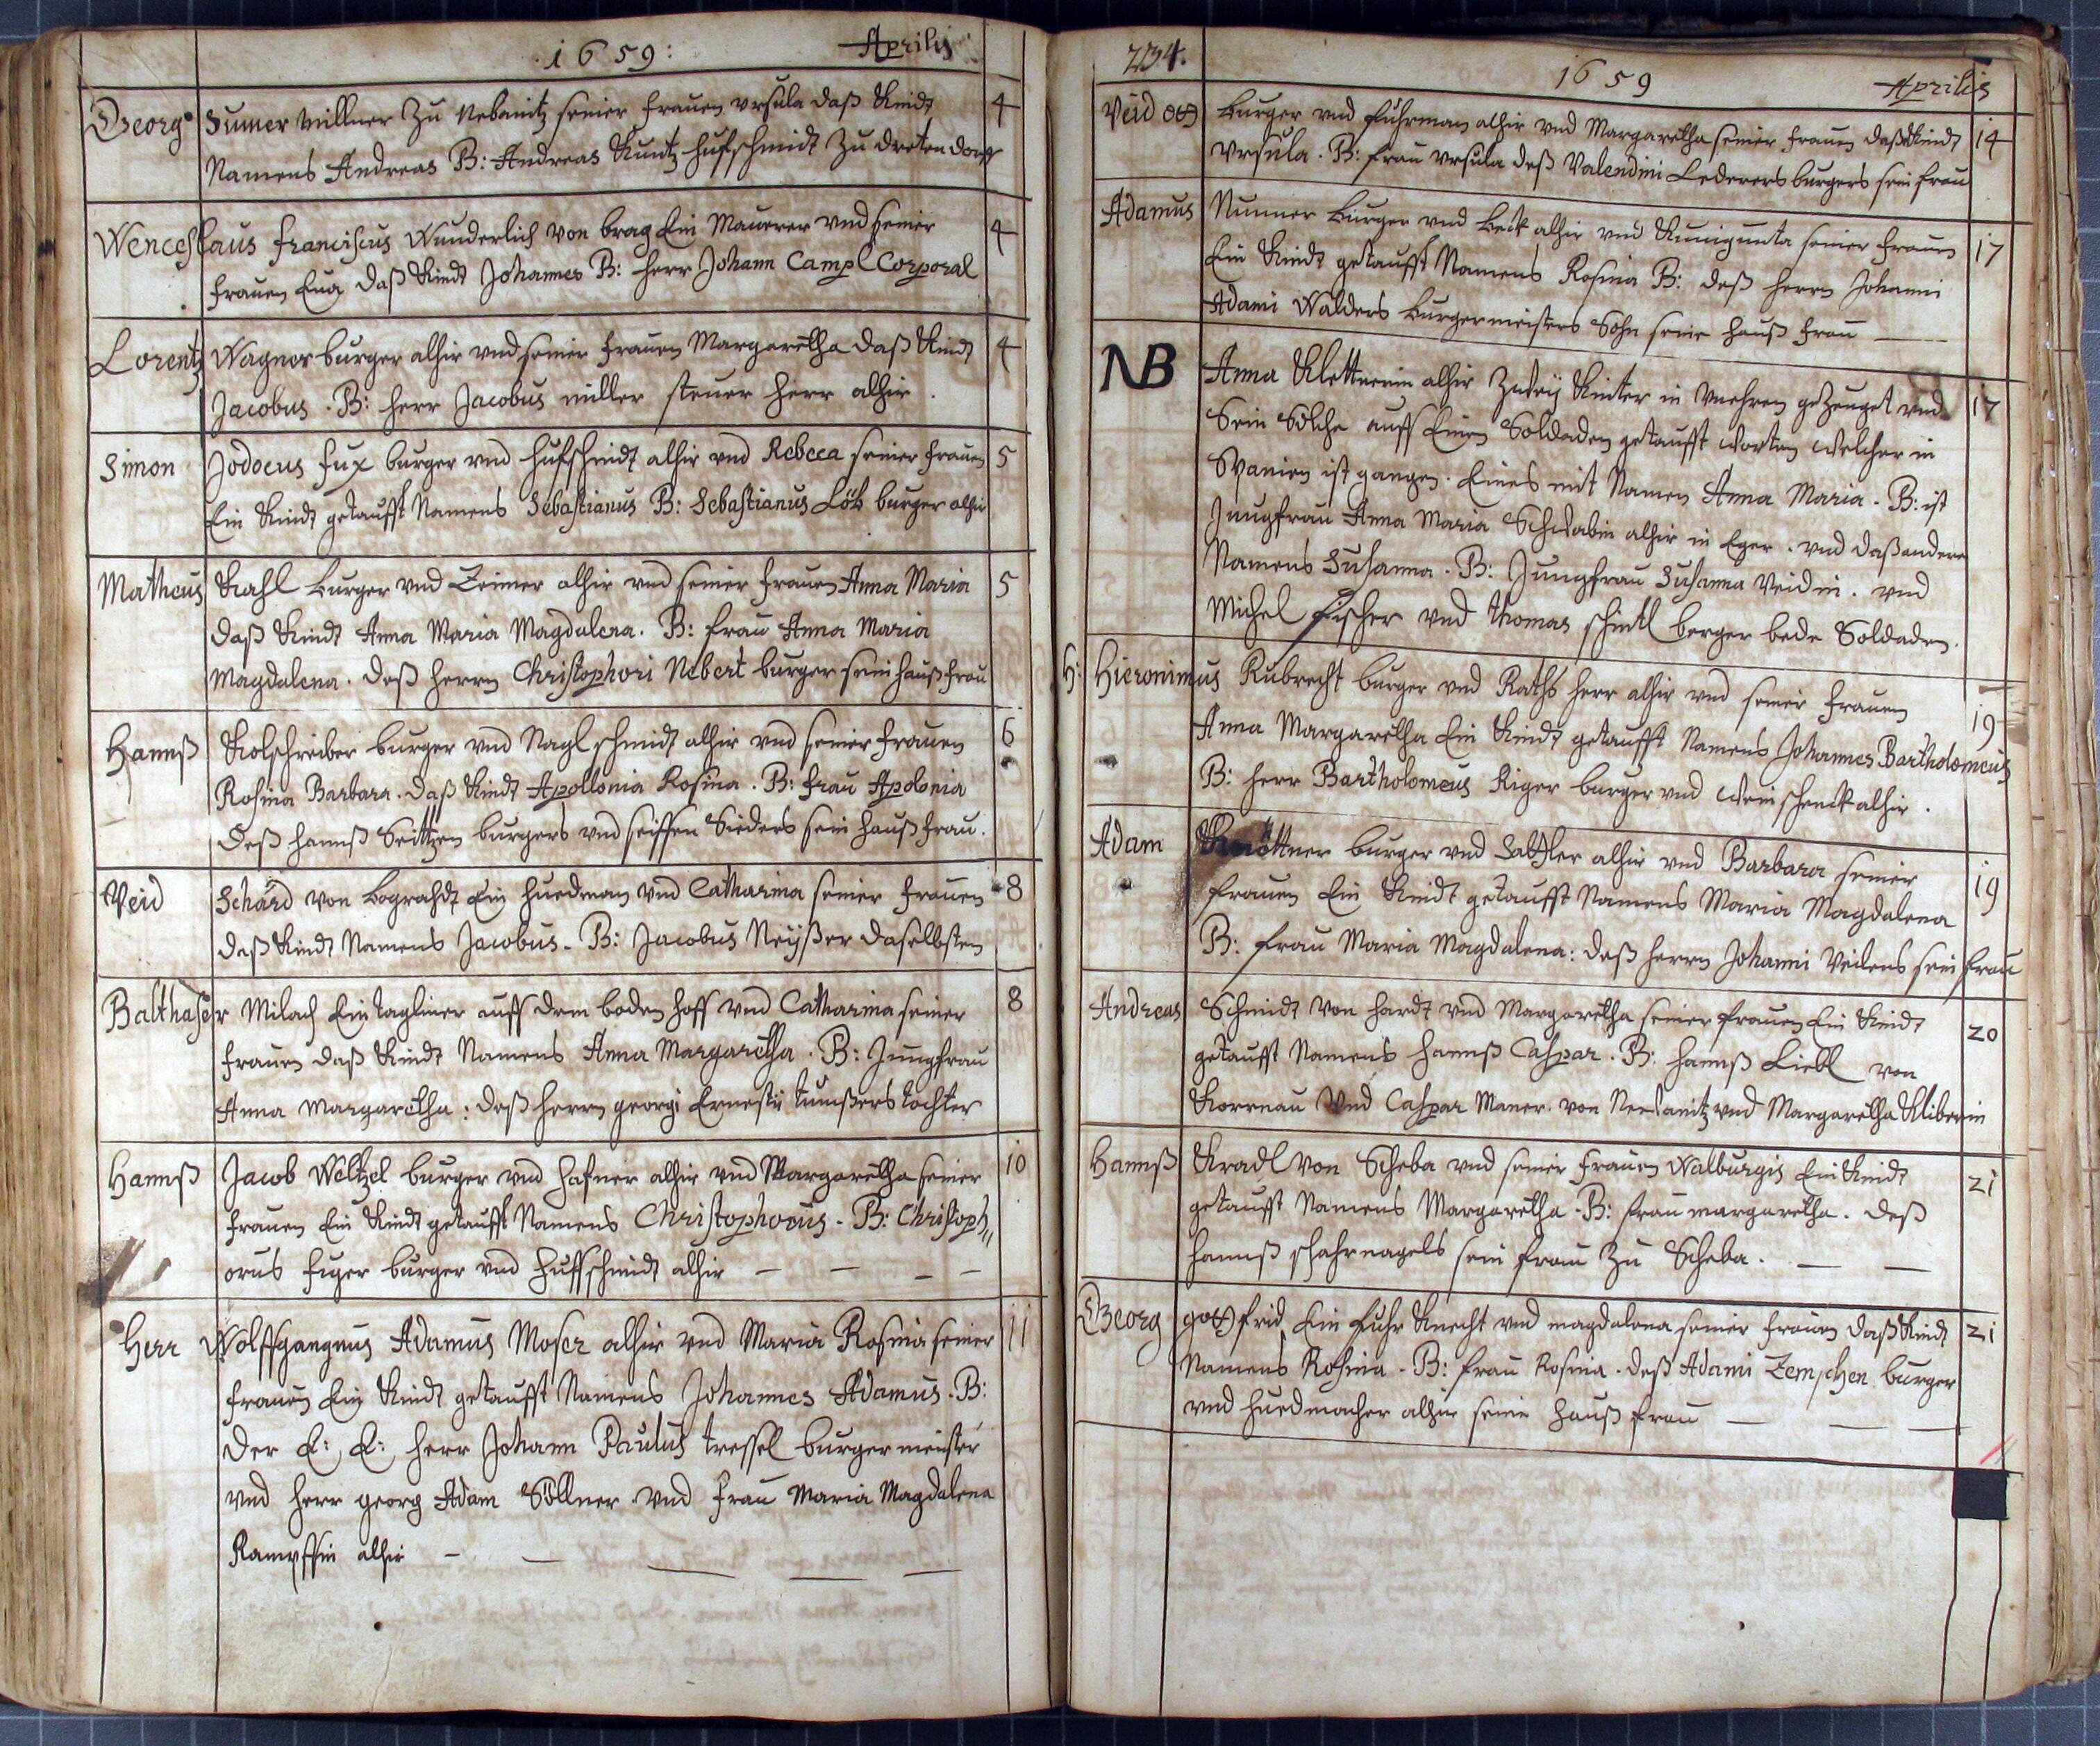 1659: Aprilis
Georg Sumer millner Zu Nebanitz seiner frauen vrsula daß Kindt 4
Namens Andreas B: Andreas Kuntz hufschmidt Zu dretendorff
Wenceslaus franciscus Wunderlich von brag Ein Maurer vnd seiner 4
frauen Eua daß Kindt Johannes B: herr Johann Campl Corporal
Lorentz Wagner burger alhir vnd seiner frauen Margaretha daß Kindt 4
Jacobus. B: herr Jacobus miller steuer herr alhir.
Simon Jodocus fux burger vnd hufschmidt alhir vnd Rebecca seiner frauen 5
Ein Kindt getaufft Namens Sebastianus B: Sebastianus Löb burger alhir
Matheus Kahl burger vnd Zeimer alhir vnd seiner frauen Anna Maria 5
daß Kindt Anna Maria Magdalena. B: frau Anna Maria
Magdalena. deß herrn Christophori Nebert burger sein hauß frau
Hannß Kolschreiber burger vnd Nagl schmidt alhir vnd seiner frauen 6
Rosina Barbara. daß Kindt Apollonia Rosina. B: frau Apolonia
deß hannß Seitzen burgers vnd seiffen Sieders sein hauß frau.
Veid Schård von Lograhdt Ein huedman vnd Catharina seiner frauen 8
daß Kindt Namens Jacobus. B: Jacobus Neÿßer daselbsten
Balthaser Milach Ein tagliner auff dem boden hoff vnd Catharina seiner 8
frauen daß Kindt Namens Anna Margaretha. B: Jungfrau
Anna Margaretha: deß herrn georgi Ernestii tumßers tochter
Hannß Jacob Weltzel burger vnd hafner alhir vnd Margaretha seiner 10
frauen Ein Kindt getaufft Namens Christophorus. B: Christoph„
orus figer burger vnd Huffschmidt alhir
Herr Wolffgangnus Adamus Moser alhir vnd Maria Rosina seiner 11
frauen Ein Kindt getaufft Namens Johannes Adamus. B:
der E: E: herr Johann Paulus tressel burger meister
vnd herr georg Adam Söllner vnd frau Maria Magdalena
alhir
234. 1659 Aprilis
Veid Ott burger vnd fuhrman alhir vnd Margaretha seiner frauen daß Kindt 14
vrsula. B: frau vrsula deß Valendini Lederers burgers sein frau
Adamus Nunner burger vnd beck alhir vnd Kunigunta seiner frauen 17
Ein Kindt getaufft Namens Rosina B: deß herrn Johanni
Adami Walders burgermeisters Sohn seine hauß frau
NB Anna Klettnerin alhir Zweÿ Kinter in vnehren geZeuget vnd 17
Sein Solche auff Einen Soldaden getaufft worten welcher in
Spanien ist gangen. Eines mit Namen Anna Maria. B: ist
Jungfrau Anna Maria Schwabin alhir in Eger. vnd daß andere
Namens Susanna. B: Jungfrau Susanna Veidin. vnd
Michel fischer vnd thomas schintl berger bede Soldaden.
H: Hieronimus Rubrecht burger vnd Raths herr alhir vnd seiner frauen 19
Anna Margaretha Ein Kindt getaufft Namens Johannes Bartholomeus
B: herr Bartholomeus Riger burger vnd weinschenckh alhir.
Adam Knöttner burger vnd Sattler alhir vnd Barbara seiner 19
frauen Ein Kindt getaufft Namens Maria Magdalena
B: frau Maria Magdalena: deß herrn Johanni Veidens sein frau
Andreas Schmidt von hardt vnd Margaretha seiner frauen Ein Kindt 20
getaufft Namens hannß Caspar. B: hannß Liebl von
Kornau Vnd Caspar Maner. von Nebanitz vnd Margaretha Kliberin
Hannß Kradl von Scheba vnd seiner frauen Walburgis Ein Kindt 21
getaufft Namens Margaretha. B: frau margaretha. deß
hannß schahrnagels sein frau Zu Scheba.
Georg gottfrid, Ein fuhr Knecht vnd magdalena seiner frauen daß Kindt 21
Namens Rosina. B: frau Rosina. deß Adami Zemschen burger
vnd huedmacher alhir seine hauß frau